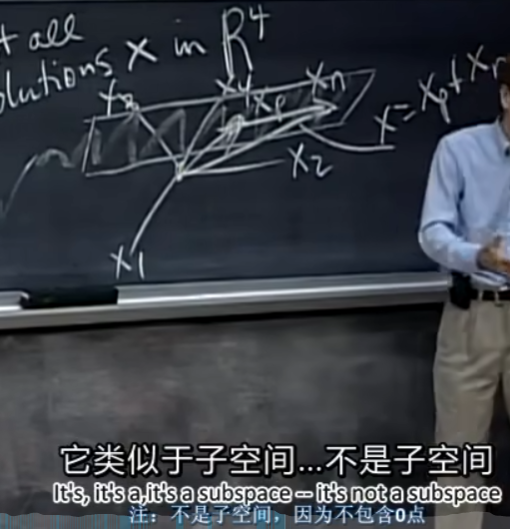 t all
olutions x in R⁴
x3 x4 xp xn
x = xp + xn
x2
x1
它类似于子空间...不是子空间
It's, it's a,it's a subspace -- it's not a subspace
注：不是子空间，因为不包含0点